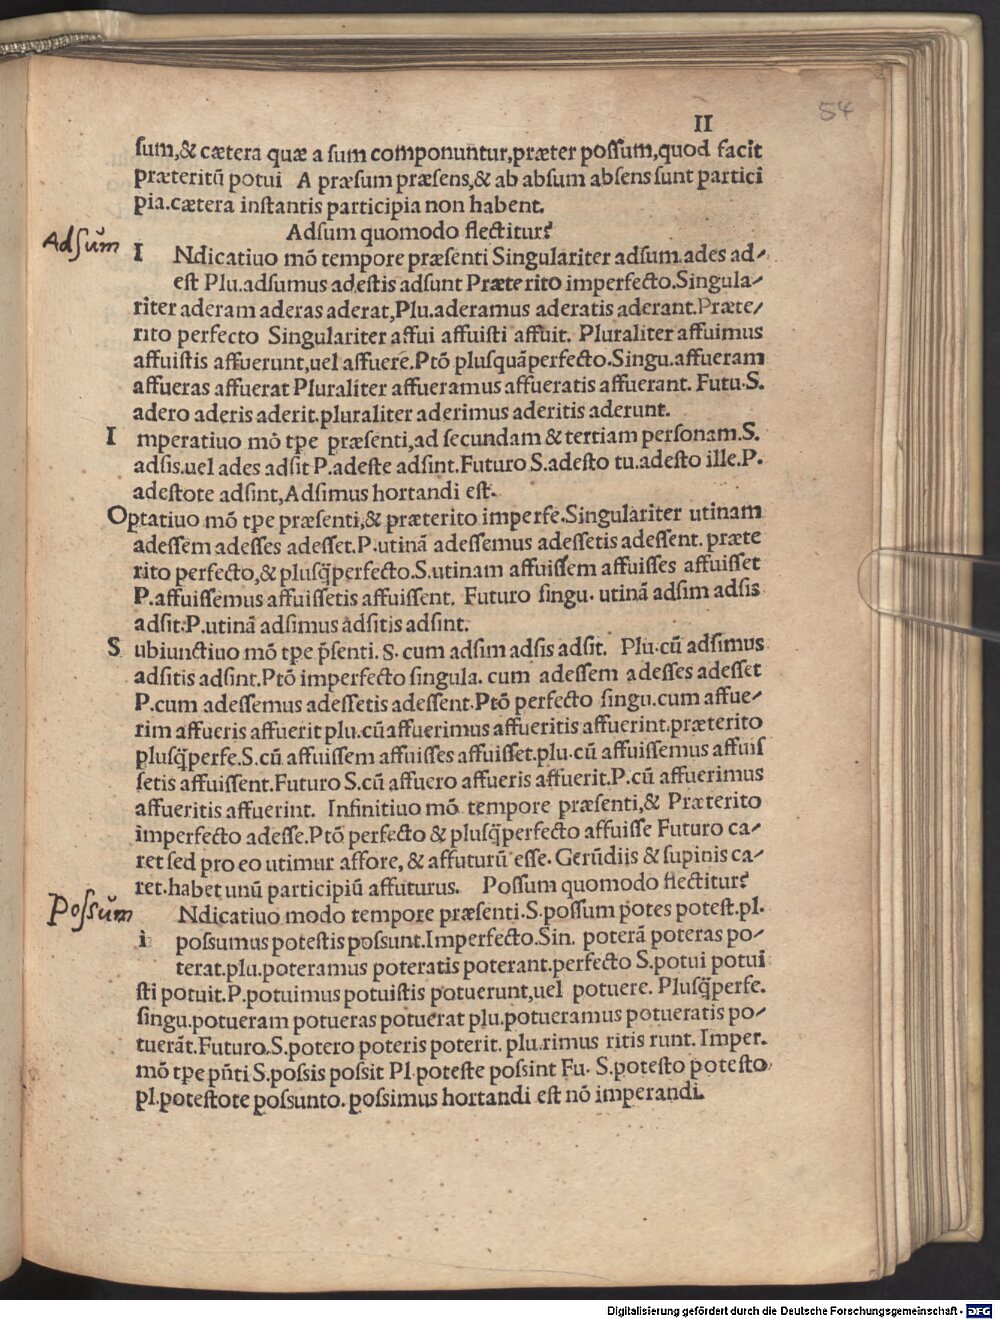 54
II
sum,& cætera quæ a sum componuntur,præter possum,quod facit
præteritū potui A præsum præsens,& ab absum absens sunt partici
pia.cætera instantis participia non habent.
Adsum quomodo flectitur?
Adsŭm
I Ndicatiuo mō tempore præsenti Singulariter adsum.ades ad-
est Plu.adsumus adestis adsunt Præterito imperfecto.Singula-
riter aderam aderas aderat,Plu.aderamus aderatis aderant.Præte-
rito perfecto Singulariter affui affuisti affuit. Pluraliter affuimus
affuistis affuerunt,uel affuere.Ptō plusquāperfecto.Singu.affueram
affueras affuerat Pluraliter affueramus affueratis affuerant. Futu.S.
adero aderis aderit.pluraliter aderimus aderitis aderunt.
I mperatiuo mō tpe præsenti,ad secundam & tertiam personam.S.
adsis.uel ades adsit P.adeste adsint.Futuro S.adesto tu.adesto ille.P.
adestote adsint,Adsimus hortandi est.
Optatiuo mō tpe præsenti,& præterito imperfe.Singulariter utinam
adessem adesses adesset.P.utinā adessemus adessetis adessent. præte
rito perfecto,& plusq̄perfecto.S.utinam affuissem affuisses affuisset
P.affuissemus affuissetis affuissent. Futuro singu. utinā adsim adsis
adsit:P.utinā adsimus adsitis adsint.
S ubiunctiuo mō tpe p̄senti. S. cum adsim adsis adsit. Plu.cū adsimus
adsitis adsint.Ptō imperfecto singula. cum adessem adesses adesset
P.cum adessemus adessetis adessent.Ptō perfecto singu.cum affue-
rim affueris affuerit plu.cū affuerimus affueritis affuerint.præterito
plusq̄perfe.S.cū affuissem affuisses affuisset.plu.cū affuissemus affuis
setis affuissent.Futuro S.cū affuero affueris affuerit.P.cū affuerimus
affueritis affuerint. Infinitiuo mō tempore præsenti,& Præterito
imperfecto adesse.Ptō perfecto & plusq̄perfecto affuisse Futuro ca-
ret sed pro eo utimur affore, & affuturū esse. Gerūdiis & supinis ca-
ret.habet unū participiū affuturus. Possum quomodo flectitur?
Possŭm
i Ndicatiuo modo tempore præsenti.S.possum potes potest.pl.
possumus potestis possunt.Imperfecto.Sin. poterā poteras po-
terat.plu.poteramus poteratis poterant.perfecto S.potui potui
sti potuit.P.potuimus potuistis potuerunt,uel potuere. Plusq̄perfe.
singu.potueram potueras potuerat plu.potueramus potueratis po-
tuerāt.Futuro.S.potero poteris poterit. plu.rimus ritis runt. Imper.
mō tpe pn̄ti S.possis possit Pl.poteste possint Fu. S.potesto potesto
pl.potestote possunto. possimus hortandi est nō imperandi.
Digitalisierung gefördert durch die Deutsche Forschungsgemeinschaft - DFG